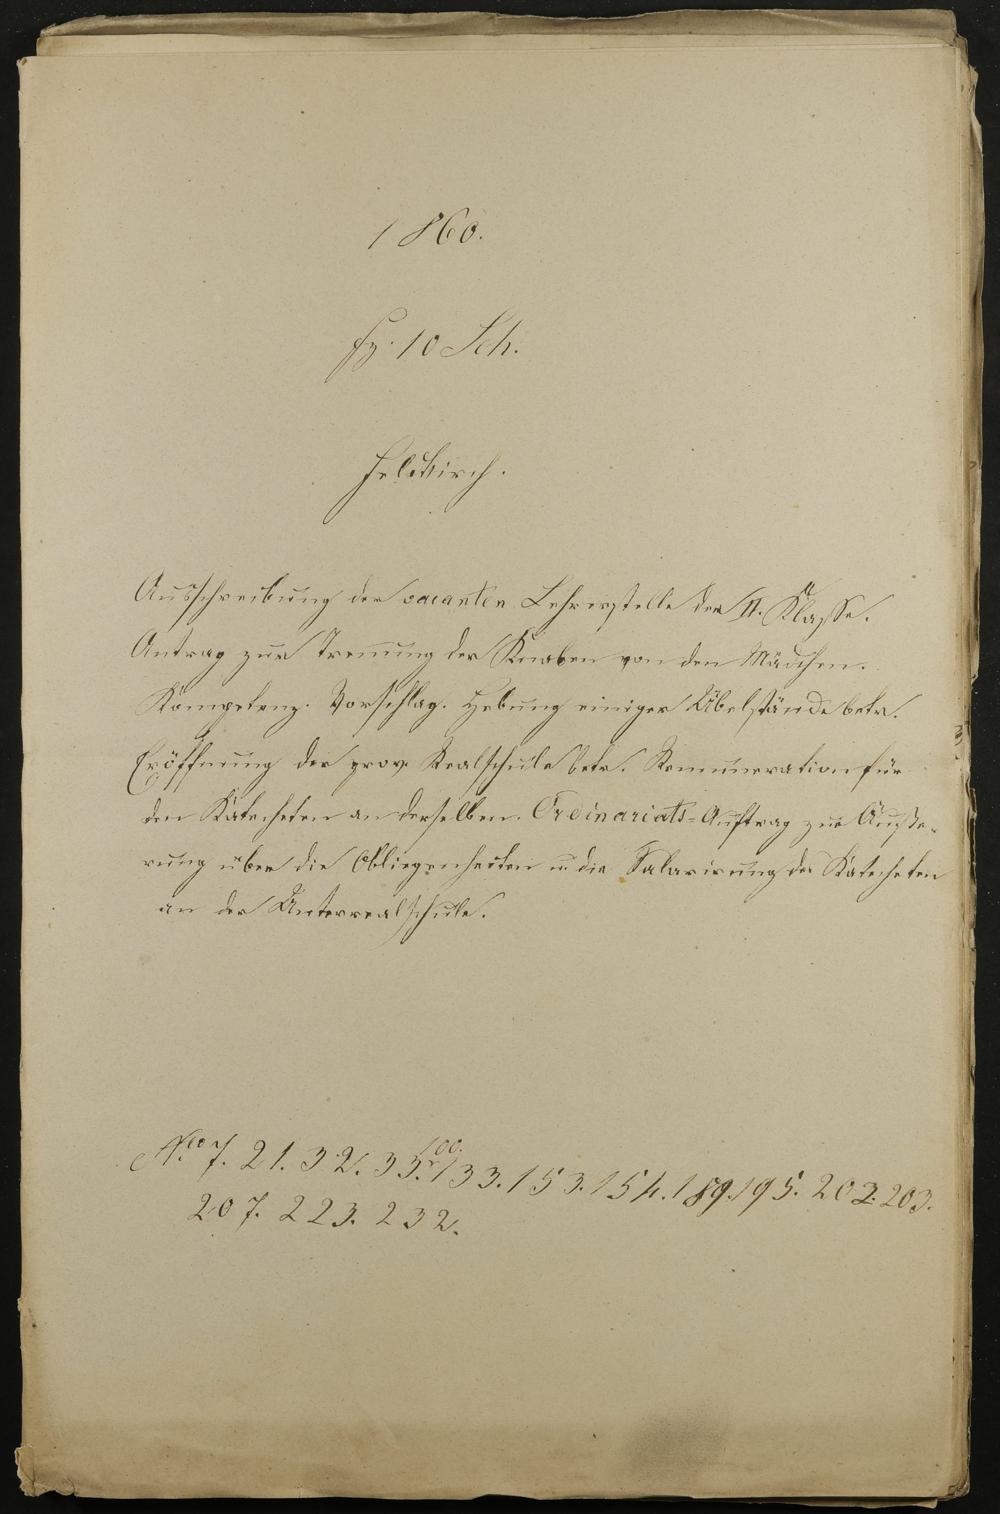 1860.
Fz. 10 Sch.
Feldkirch.
Ausschreibung der vacanten Lehrerstelle der II. Klasse.
Antrag zur Trennung der Knaben von den Mädchen.
Kompetenz. Vorschlag. Hebung einiger Übelstände betr.
Eröffnung der prov. Realschule betr. Remuneration für
den Katecheten an derselben. Ordinariats-Auftrag zur Äuße-
rung über die Obliegenheiten u. die Salarirung des Katecheten
an der Unterrealschule.
No. 7. 21. 32. 35. 100. 133. 153. 154. 189. 195. 202. 203.
207. 223. 232.